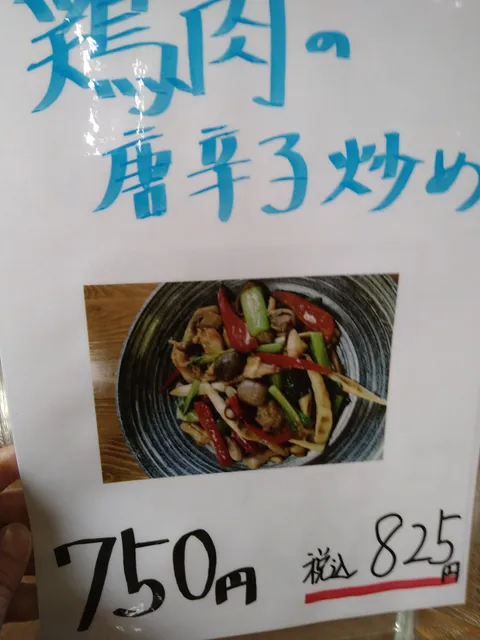 鶏肉の
唐辛子炒め
750円
税込 825円